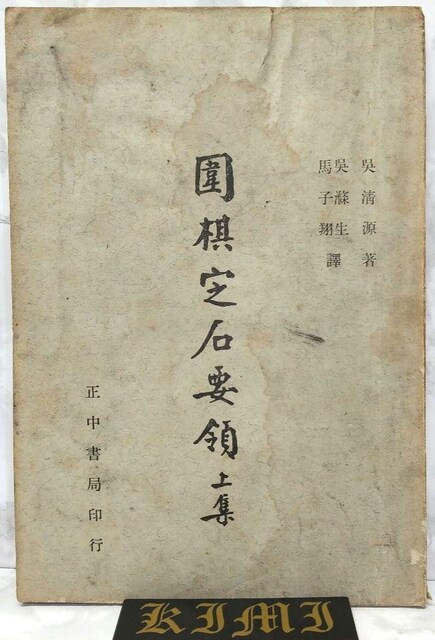 吳清源著
吳滌生
馬子翔
譯
圍棋定石要領上集
正中書局印行
KIMI